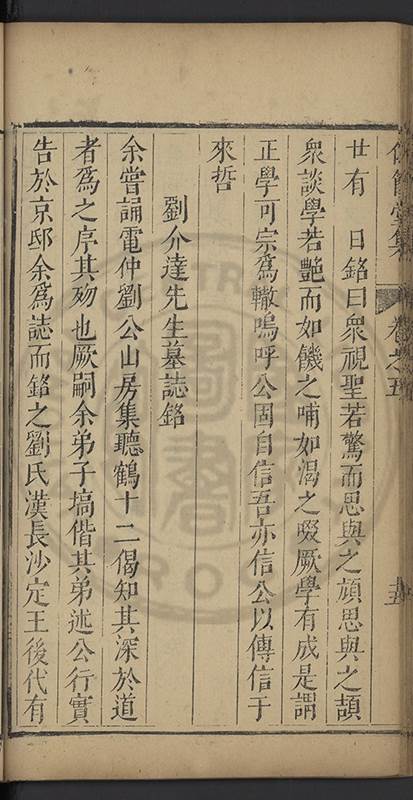 廿有　日銘曰衆視聖若驚而思與之頏思與之頡
衆談學若艷而如饑之哺如渴之啜厥學有成是謂
正學可宗爲轍嗚呼公固自信吾亦信公以傳信于
來哲
劉介達先生墓誌銘
余嘗誦電仲劉公山房集聽鶴十二偈知其深於道
者爲之序其歿也厥嗣余弟子塙偕其弟述公行實
告於京邸余爲誌而銘之劉氏漢長沙定王後代有